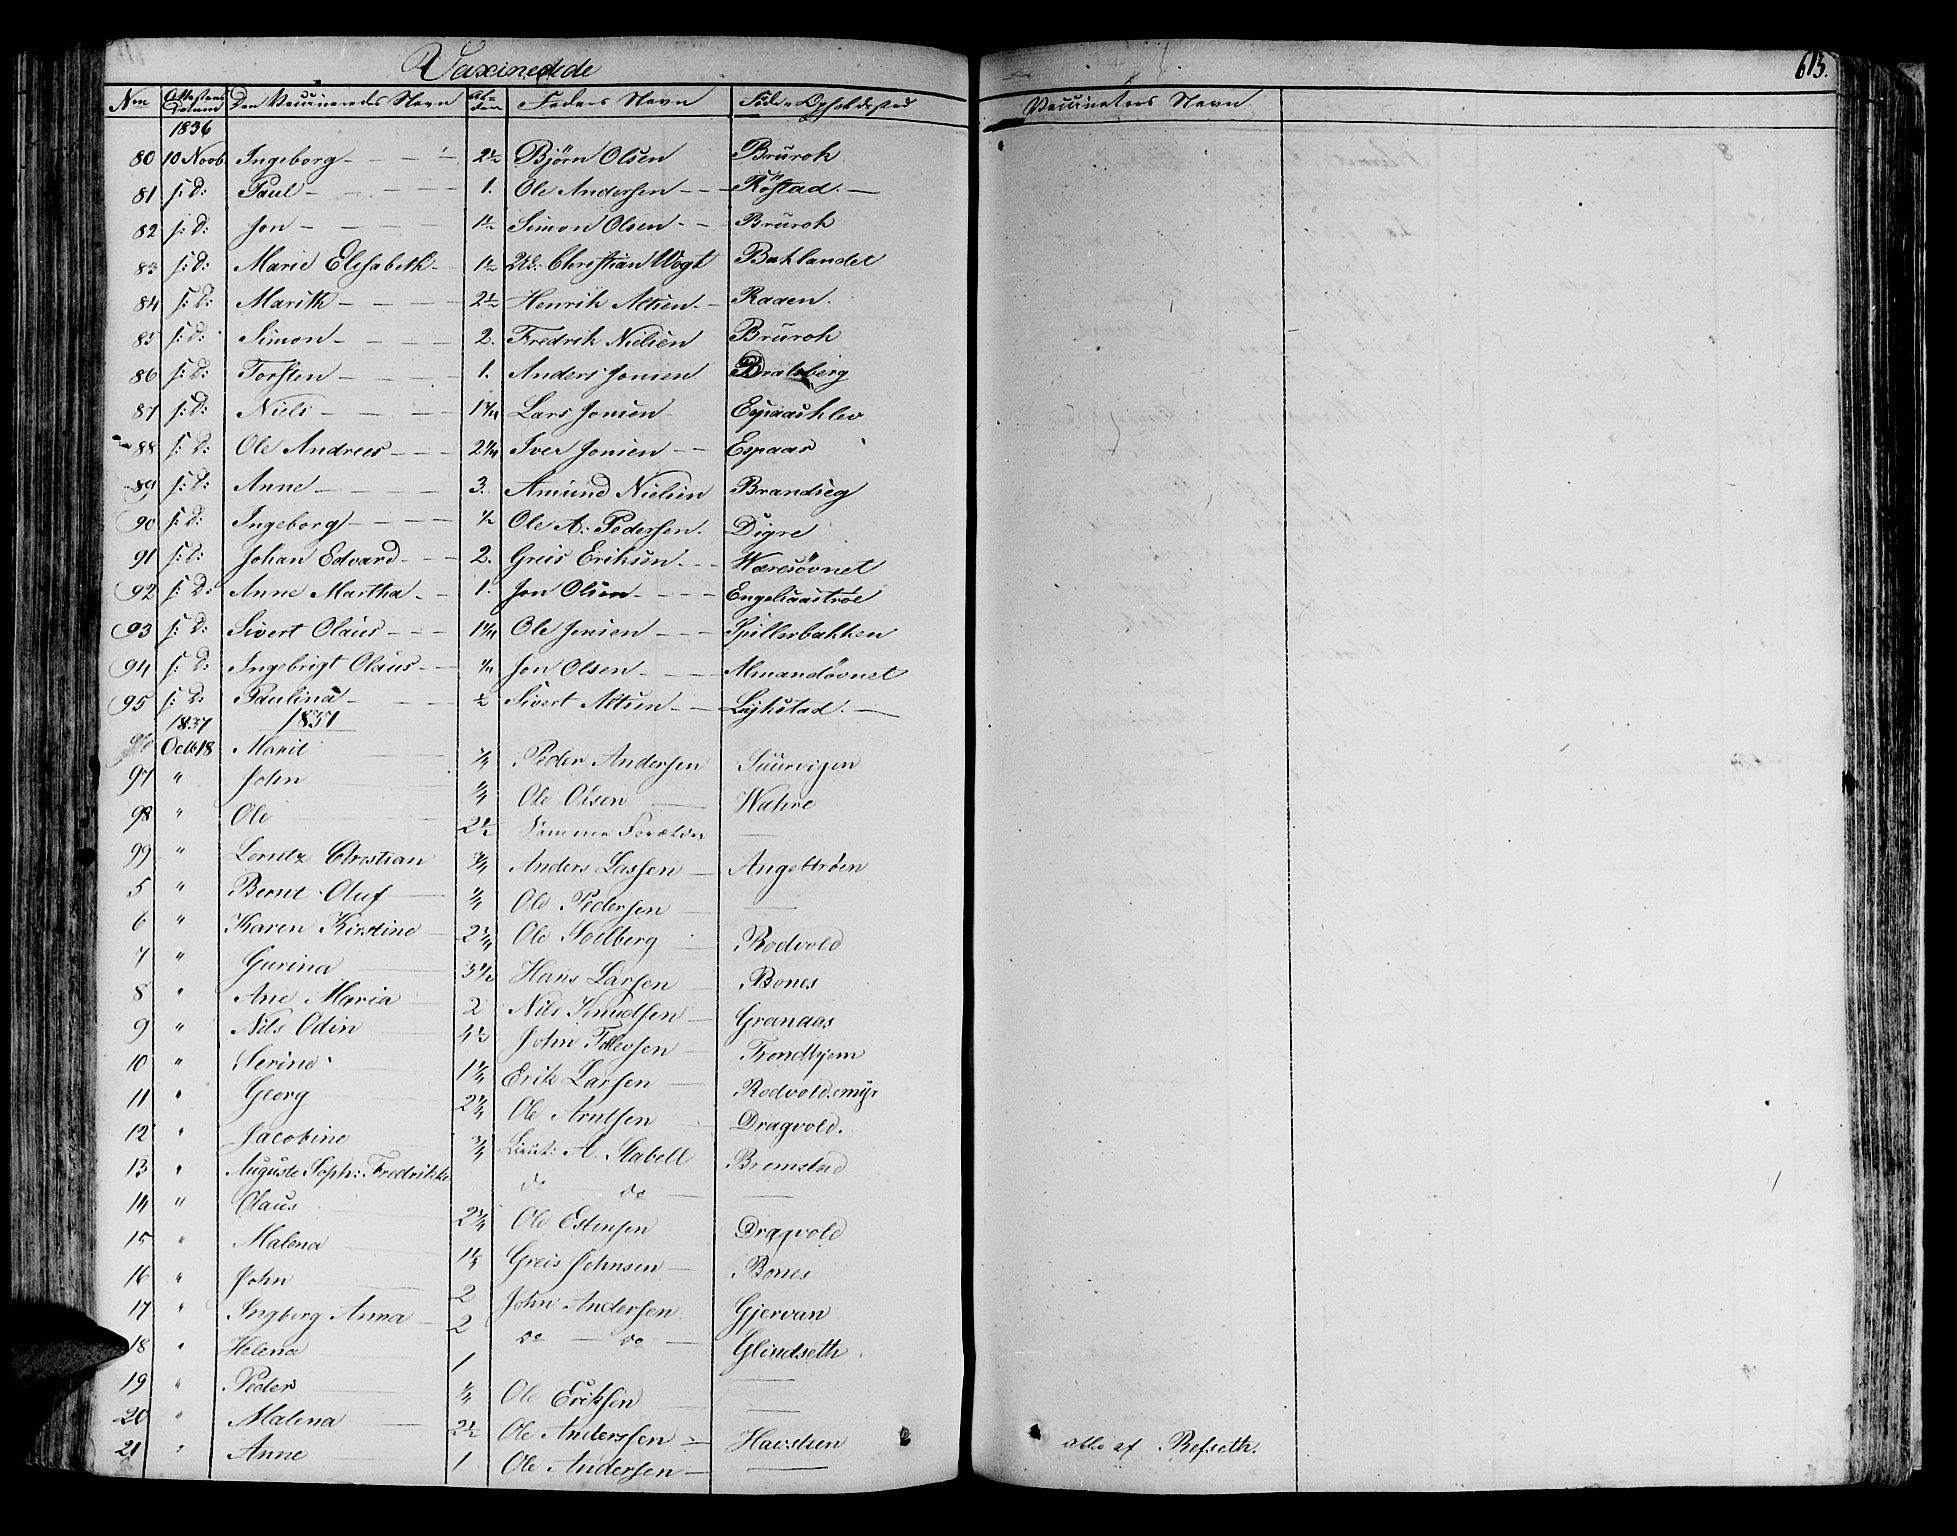 Vaxinerede
615.
Nm Attestens Datum Den Vaccineredes Navn Alderen Faders Navn Føde- Opholdssted Vaccinators Navn
1836
80 10 Novb Ingeborg 2½ Bjørn Olsen Brurok
81 s: D: Paul 1. Ole Andersen Röstad.
82 s: D: Jon 1½ Simon Olsen Brurok
83 s: D: Marie Elisabeth 1½ Christian Wogt Baklandet
84 s: D: Marith 2½ Henrik Altsen Raaen.
85 s: D: Simon 2. Fredrik Nielsen Brurok
86 s: D: Torsten 1. Anders Jonsen Bratsberg
87 s: D: Niels 1¼ Lars Jonsen Espaasklev
88 s: D: Ole Andreas 2¼ Iver Jonsen Espaas
89 s: D: Anne 3. Amund Nielsen Brandseg
90 s: D: Ingeborg ½ Ole A: Pedersen. Digre
91 s: D: Johan Edvard 2. Greis Eriksen Wæresøvnet
92 s: D: Anne Martha 1. Jon Olsen Engelsaastrøe
93 s: D: Sivert Olaus 1¼ Ole Jensen Spillerbakken
94 s: D: Ingebrigt Olaus ¼ Jon Olsen Almandøvnet
95 s: D: Paulina ½ Sivert Altsen Lykstad.
1837 1837
96 Octb 18 Marit ¼ Peder Andersen Suurvigen
97 " John ¾ Ole Olsen Wahre
98 " Ole 2½ Samme Forældre —
99 " Lorntz Christian ¾ Anders Lassen Angeltrøen
5 " Bernt Oluf ¾ Ole Pedersen —
6 " Karen Kirstine 2¼ Ole Solberg Rodvold
7 " Gurina 3½ Hans Larsen Bones
8 " Ane Maria 2 Nils Knudsen Granaas
9 " Nils Odin 4½ John Tollevsen Trondhjem
10 " Serine 1¾ Erik Larsen Rodvoldsmyr
11 " Georg 2¼ Ole Arntsen Dragvold.
12 " Jacobine ¾ Lieut: A. Stabell Bromstad
13 " Auguste Soph: Fredrikke do do —
14 " Olaus 2¾ Ole Estensen Dragvold
15 " Malena 1½ Greis Johnsen Bones
16 " John 2 John Andersen Gjervan
17 " Ingberg Anna 2 do — do Glindseth
18 " Helena 1
19 " Peder ¾ Ole Eriksen —
20 " Malena 2½ Ole Anderssen Havstien
21 " Anne 1 Ole Andersen —
alle af Refseth.